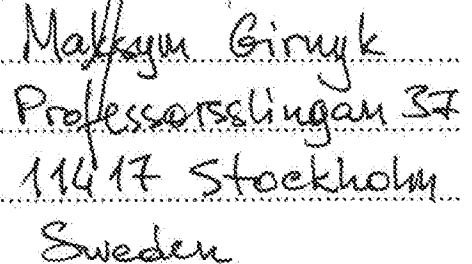 Maksym Girnyk
Professorsslingan 37
11417 Stockholm
Sweden